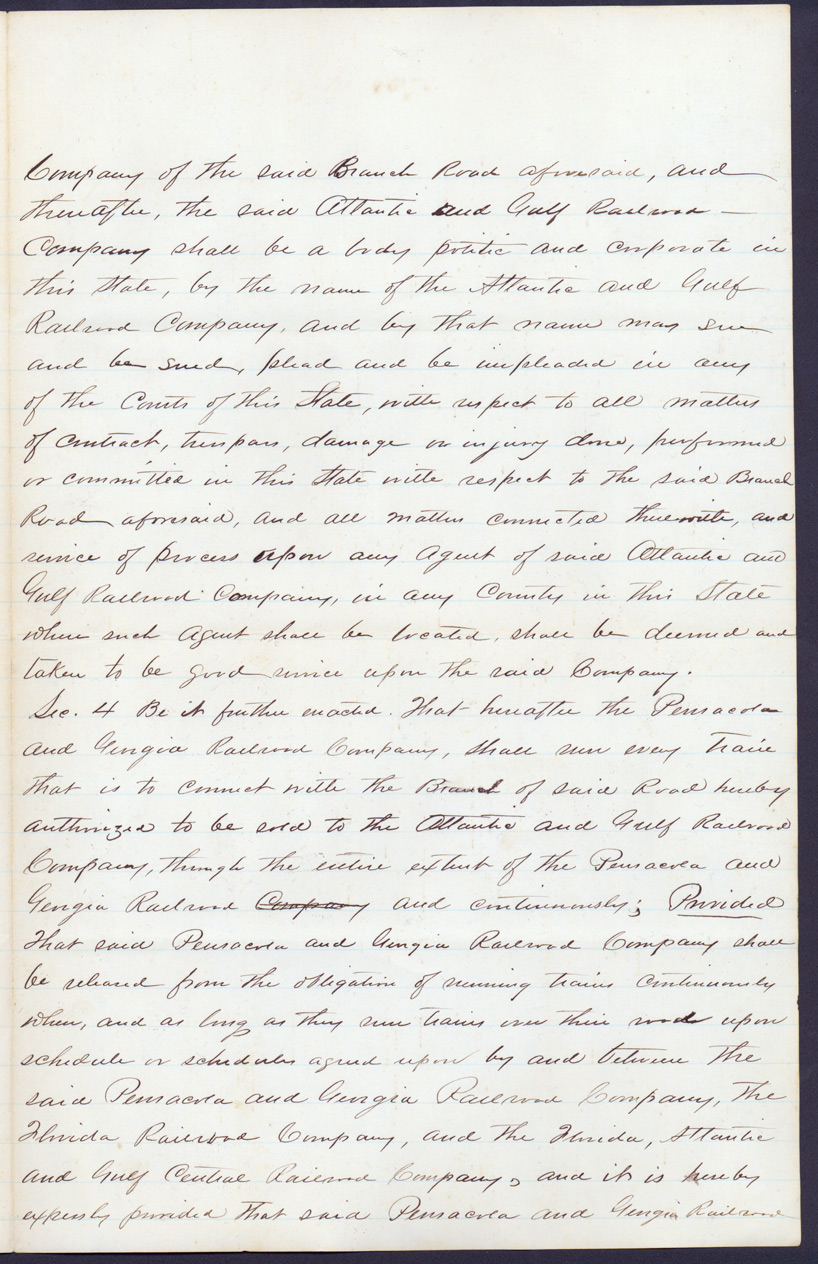 Company of the said Branch Road aforesaid, and
thereafter, the said Atlantic and Gulf Railroad –
Company shall be a body politic and corporate in
this State, by the name of the Atlantic and Gulf
Railroad Company, and by that name may sue
and be sued, plead and be impleaded in any
of the Courts of this State, with respect to all matters
of contract, trespass, damage or injury done, performed
or committed in this State with respect to the said Branch
Road aforesaid, and all matters connected therewith, and
service of process upon any Agent of said Atlantic and
Gulf Railroad Company, in any County in this State
where such Agent shall be located, shall be deemed and
taken to be good service upon the said Company.
Sec. 4 Be it further enacted. That hereafter the Pensacola
and Georgia Railroad Company, shall run every train
that is to connect with the Branch of said Road hereby
authorized to be sold to the Atlantic and Gulf Railroad
Company, through the entire extent of the Pensacola and
Georgia Railroad Company and continuously; Provided
That said Pensacola and Georgia Railroad Company shall
be released from the obligation of running trains continuously
when, and as long as they run trains over their road upon
schedule or schedules agreed upon by and between the
said Pensacola and Georgia Railroad Company, the
Florida Railroad Company, and the Florida, Atlantic
and Gulf Central Railroad Company, and it is hereby
expressly provided that said Pensacola and Georgia Railroad